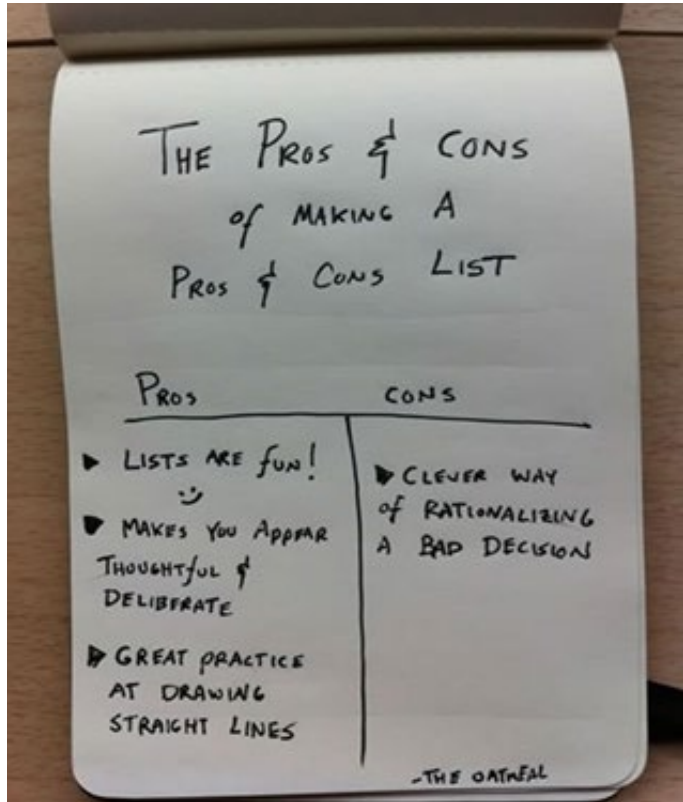 THE PROS & CONS
of MAKING A
PROS & CONS LIST
PROS
CONS
▶ LISTS ARE fUN!
:)
▶ MAKES YOU APPEAR
THOUGHTfUL &
DELIBERATE
▶ GREAT PRACTICE
AT DRAWING
STRAIGHT LINES
▶ CLEVER WAY
of RATIONALIZING
A BAD DECISION
-THE OATMEAL